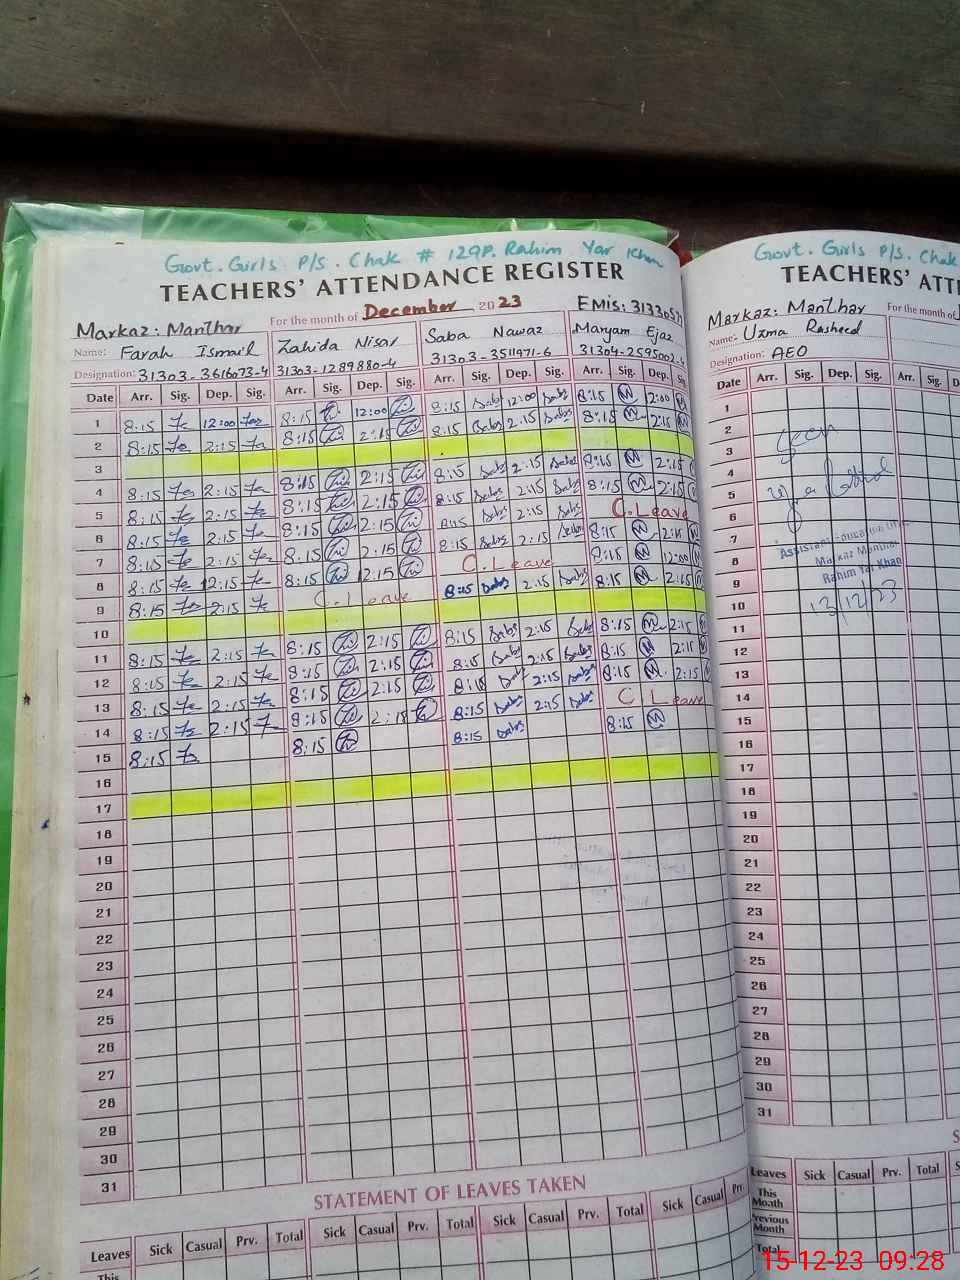 Govt. Girls P/S. Chak # 129P. Rahim Yar Khan
TEACHERS' ATTENDANCE REGISTER
For the month of December 2023
EMIS:
Markaz: Manthar
Name: Farah Ismail Zahida Nisar Saba Nawaz Maryam Ejaz
Designation: 31303-3616073-4 31303-1289880-4 31303-3511971-6 31304-2595002-
Date Arr. Sig. Dep. Sig. Arr. Sig. Dep. Sig. Arr. Sig. Dep. Sig. Arr. Sig. Dep. Sig.
1 8:15 12:00 8:15 12:00 8:15 12:00 8:15 2:00
2 8:15 2:15 8:15 2:15 8:15 2:15 8:15 2:15
3
4 8:15 2:15 8:15 2:15 8:15 2:15 8:15 2:15
5 8:15 2:15 8:15 2:15 8:15 2:15 8:15 2:15
6 8:15 2:15 8:15 2:15 8:15 2:15 C. Leave
7 8:15 2:15 8:15 2:15 8:15 2:15 8:15 2:15
8 8:15 12:15 8:15 12:15 C. Leave 8:15 12:00
9 8:15 2:15 C. Leave 8:15 2:15 8:15 2:15
10
11 8:15 2:15 8:15 2:15 8:15 2:15 8:15 2:15
12 8:15 2:15 8:15 2:15 8:15 2:15 8:15 12:15
13 8:15 2:15 8:15 2:15 8:15 2:15 8:15 2:15
14 8:15 2:15 8:15 2:15 8:15 2:15 C Leave
15 8:15 8:15 8:15 8:15
16
17
18
19
20
21
22
23
24
25
26
27
28
29
30
31
STATEMENT OF LEAVES TAKEN
Leaves Sick Casual Prv. Total Sick Casual Prv. Total Sick Casual Prv. Total Sick Casual Prv.
This
Govt. Girls P/S. Chak
TEACHERS' ATT
Markaz: Manthar
For the month of
Name: Uzma Rasheed
Designation: AEO
Date Arr. Sig. Dep. Sig. Arr. Sig.
1
2
3
4
5
6
7
8
9
10
11
12
13
14
15
16
17
18
19
20
21
22
23
24
25
26
27
28
29
30
31
Seen
Assistant Education
Markaz Manthar
Rahim Yar Khan
13/12/23
S
Leaves Sick Casual Prv. Total
This Month
Previous Month
Total
15-12-23 09:28